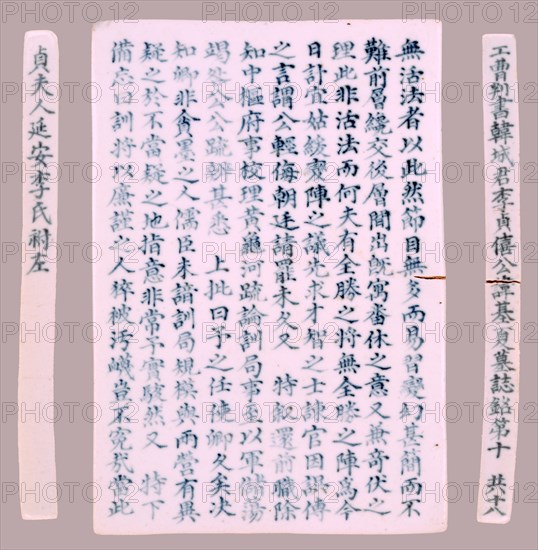 工曹判書韓城君李貞僖公諱基夏墓誌銘第十 共十八
無活法者以此然節目無多而易習變制甚簡而不
難前層繞交後層間出旣寓番休之意又兼奇伏之
理此非活法而何夫有全勝之將無全勝之陣爲今
日計宜姑緩變陣之議先求才智之士諫官因謬傳
之言謂公輕侮朝廷請罷未久又 特叙還前職除
知中樞府事校理黃龜河疏論訓局事至以軍儲蕩
竭咎公公疏辨甚悉 上批曰予之任陳卿久矣決
知卿非貪墨之人濡臣未諳訓局規模與兩營有異
疑之於不當疑之地措意非常予實駭然又 特下
備忘曰訓將以廉謹之人猝被汚衊豈不寃哉當此
貞夫人延安李氏祔左